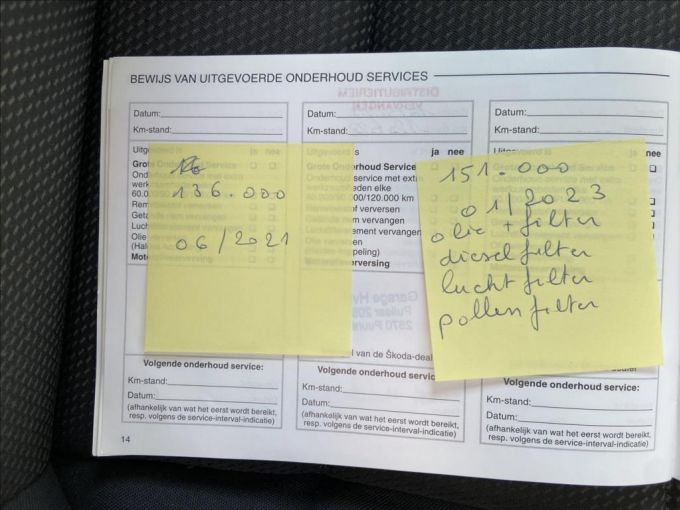 BEWIJS VAN UITGEVOERDE ONDERHOUD SERVICES
DISTRIBUTIERIEM
VERVANGEN
Datum:
Km-stand:
Datum:
Km-stand:
Datum:
Km-stand:
Uitgevoerd is
ja nee
Grote Onderhoud Service
60.0
Motorolieverversing
136.000
06/2021
ja nee
Grote Onderhoud Service
service met extra
eden elke
00/120.000 km
verversen
vervangen
ement vervangen
peling)
verversing
Garage
el van de Škoda-deal
ja nee
151.000
01/2023
olie + filter
dieselfilter
luchtfilter
pollenfilter
Volgende onderhoud service:
Km-stand:
Datum:
(afhankelijk van wat het eerst wordt bereikt,
resp. volgens de service-interval-indicatie)
Volgende onderhoud service:
Km-stand:
Datum:
(afhankelijk van wat het eerst wordt bereikt,
resp. volgens de service-interval-indicatie)
Volgende onderhoud service:
Km-stand:
Datum:
(afhankelijk van wat het eerst wordt bereikt,
resp. volgens de service-interval-indicatie)
14